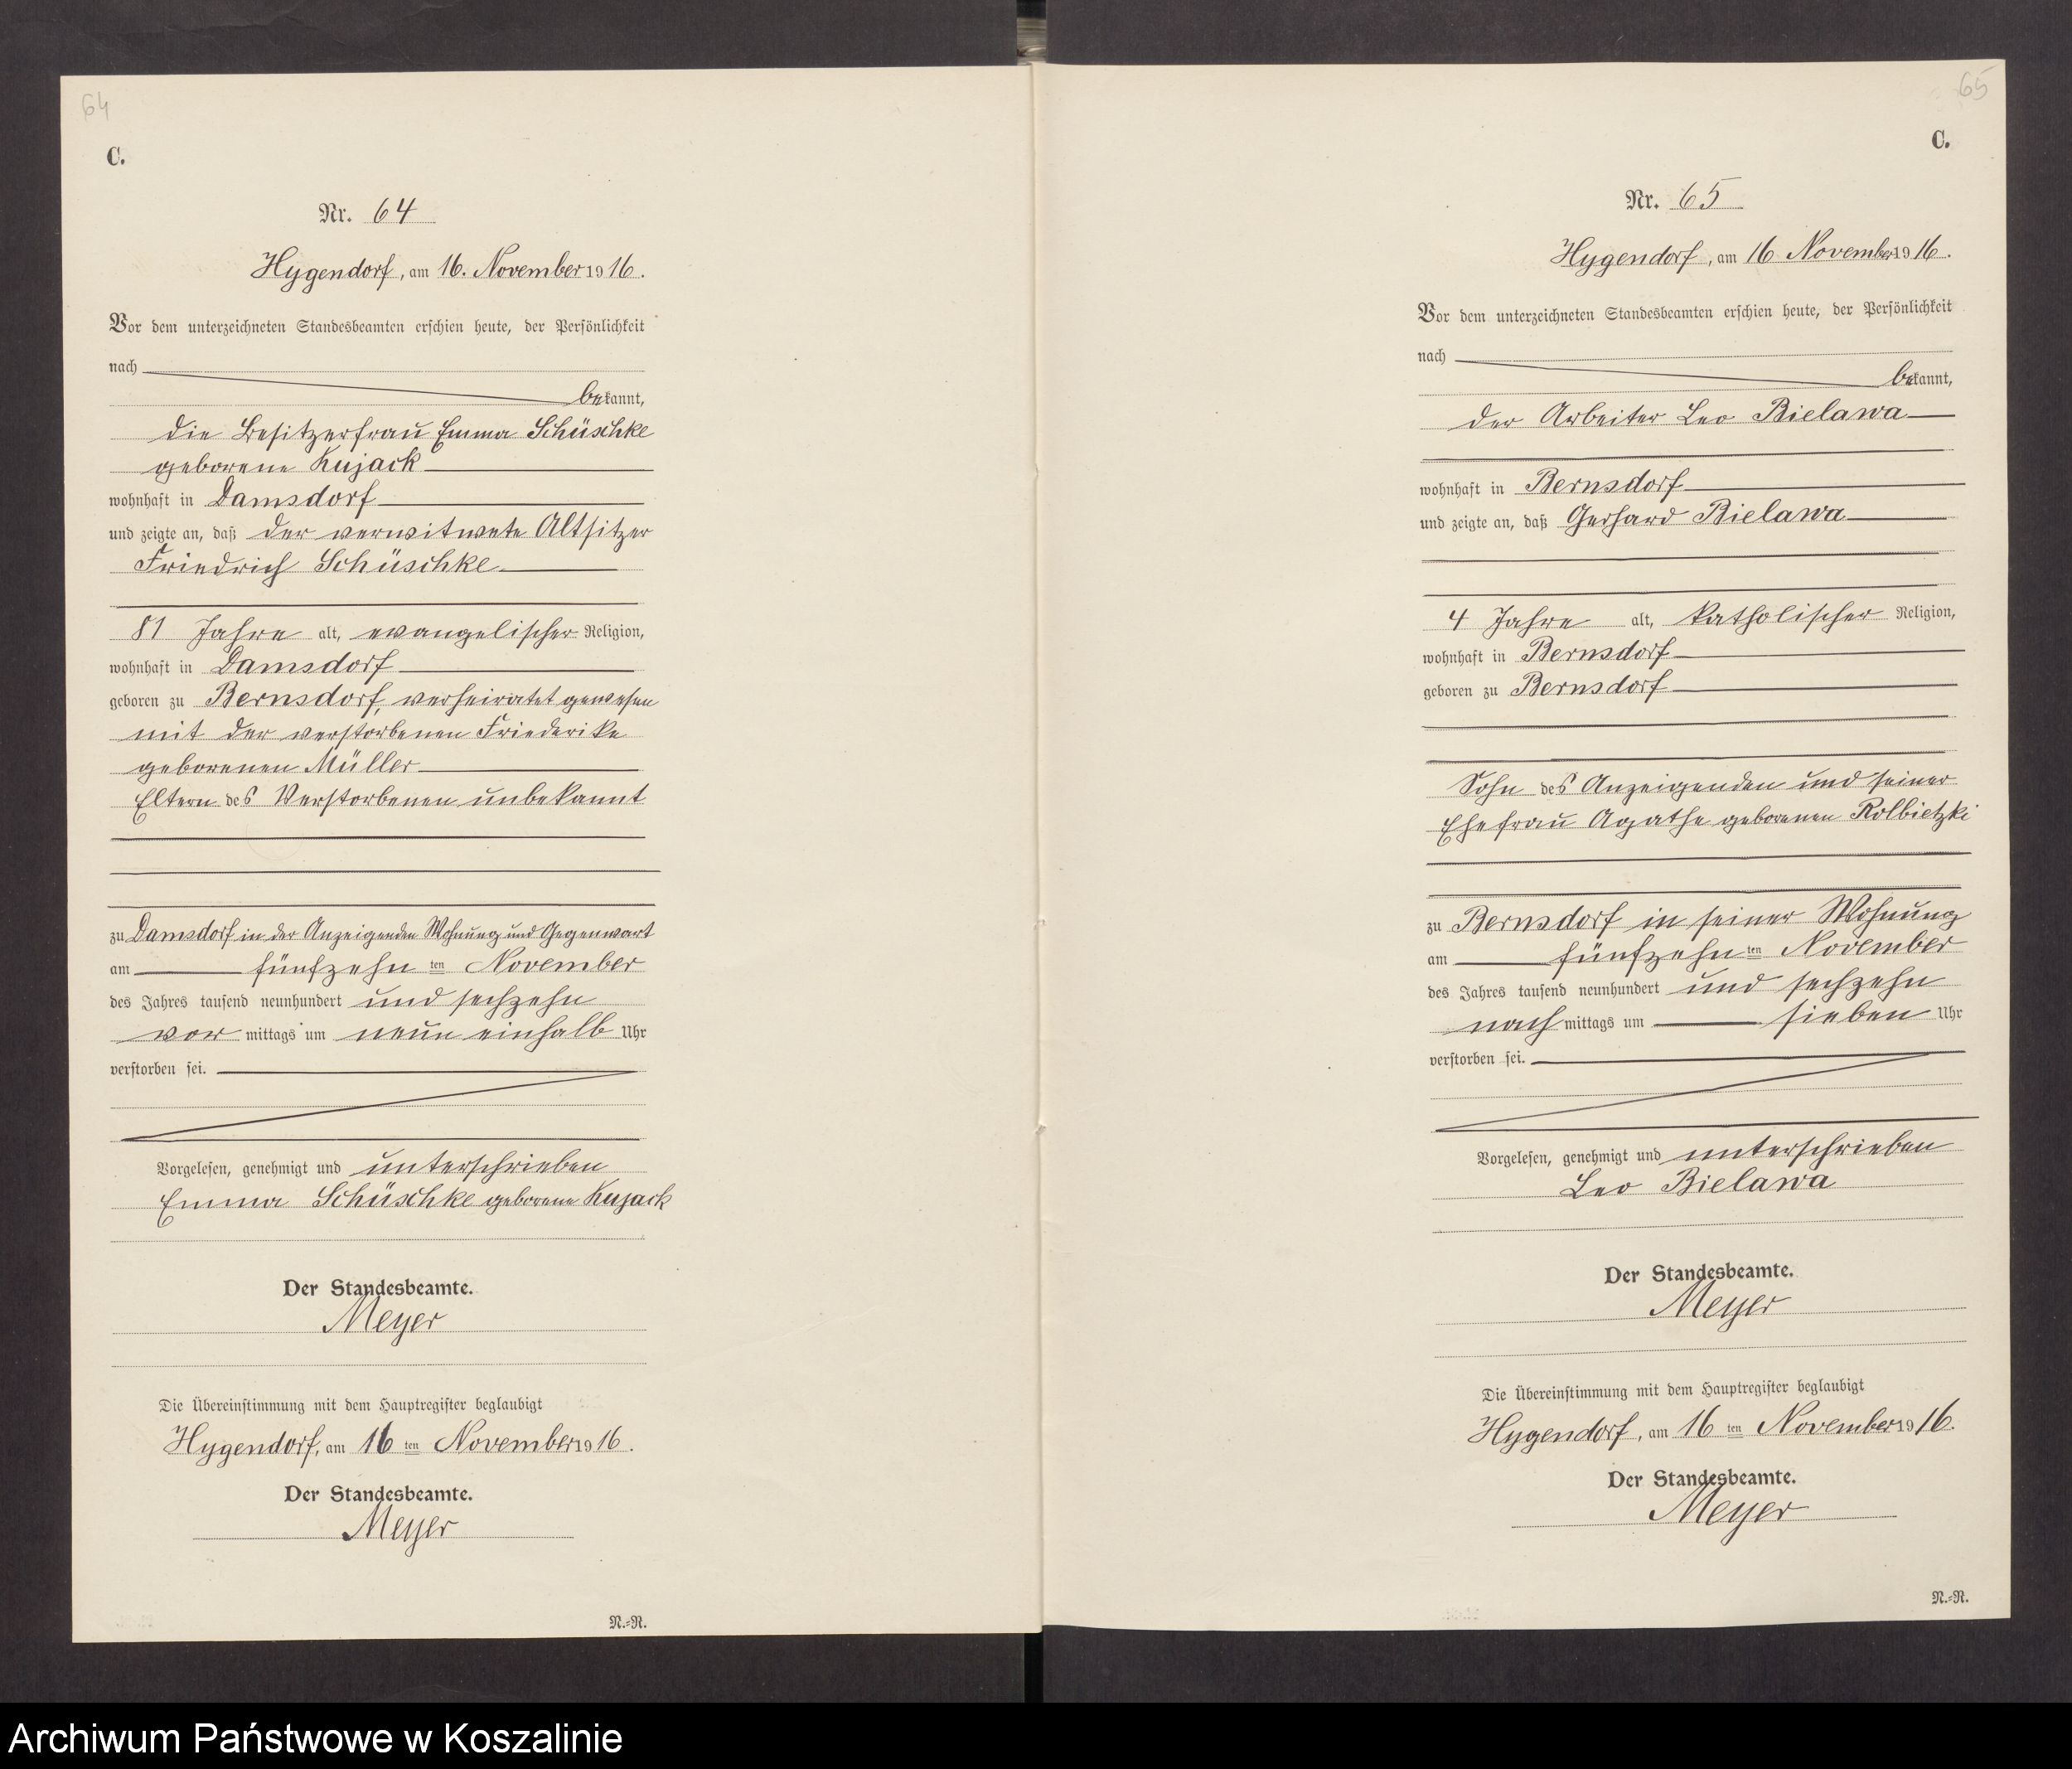 64
C.
Nr. 64
Hygendorf, am 16. November 1916.
Vor dem unterzeichneten Standesbeamten erschien heute, der Persönlichkeit
nach
bekannt,
die Besitzerfrau Emma Schüschke
geborene Kujack
wohnhaft in Damsdorf
und zeigte an, daß der verwitwete Altsitzer
Friedrich Schüschke
81 Jahre alt, evangelischer Religion,
wohnhaft in Damsdorf
geboren zu Bernsdorf, verheiratet gewesen
mit der verstorbenen Friederike
geborenen Müller
Eltern des Verstorbenen unbekannt
zu Damsdorf in der Anzeigenden Wohnung und Gegenwart
am fünfzehn ten November
des Jahres tausend neunhundert und sechzehn
vor mittags um neun einhalb Uhr
verstorben sei.
Vorgelesen, genehmigt und unterschrieben
Emma Schüschke geborene Kujack
Der Standesbeamte.
Meyer
Die Übereinstimmung mit dem Hauptregister beglaubigt
Hygendorf, am 16 ten November 1916.
Der Standesbeamte.
Meyer
N.-R.
65
C.
Nr. 65
Hygendorf, am 16 November 1916.
Vor dem unterzeichneten Standesbeamten erschien heute, der Persönlichkeit
nach
bekannt,
der Arbeiter Leo Bielawa
wohnhaft in Bernsdorf
und zeigte an, daß Gerhard Bielawa
4 Jahre alt, katholischer Religion,
wohnhaft in Bernsdorf
geboren zu Bernsdorf
Sohn des Anzeigenden und seiner
Ehefrau Agathe geborenen Rolbietzki
zu Bernsdorf in seiner Wohnung
am fünfzehn ten November
des Jahres tausend neunhundert und sechzehn
nach mittags um sieben Uhr
verstorben sei.
Vorgelesen, genehmigt und unterschrieben
Leo Bielawa
Der Standesbeamte.
Meyer
Die Übereinstimmung mit dem Hauptregister beglaubigt
Hygendorf, am 16 ten November 1916.
Der Standesbeamte.
Meyer
N.-R.
Archiwum Państwowe w Koszalinie